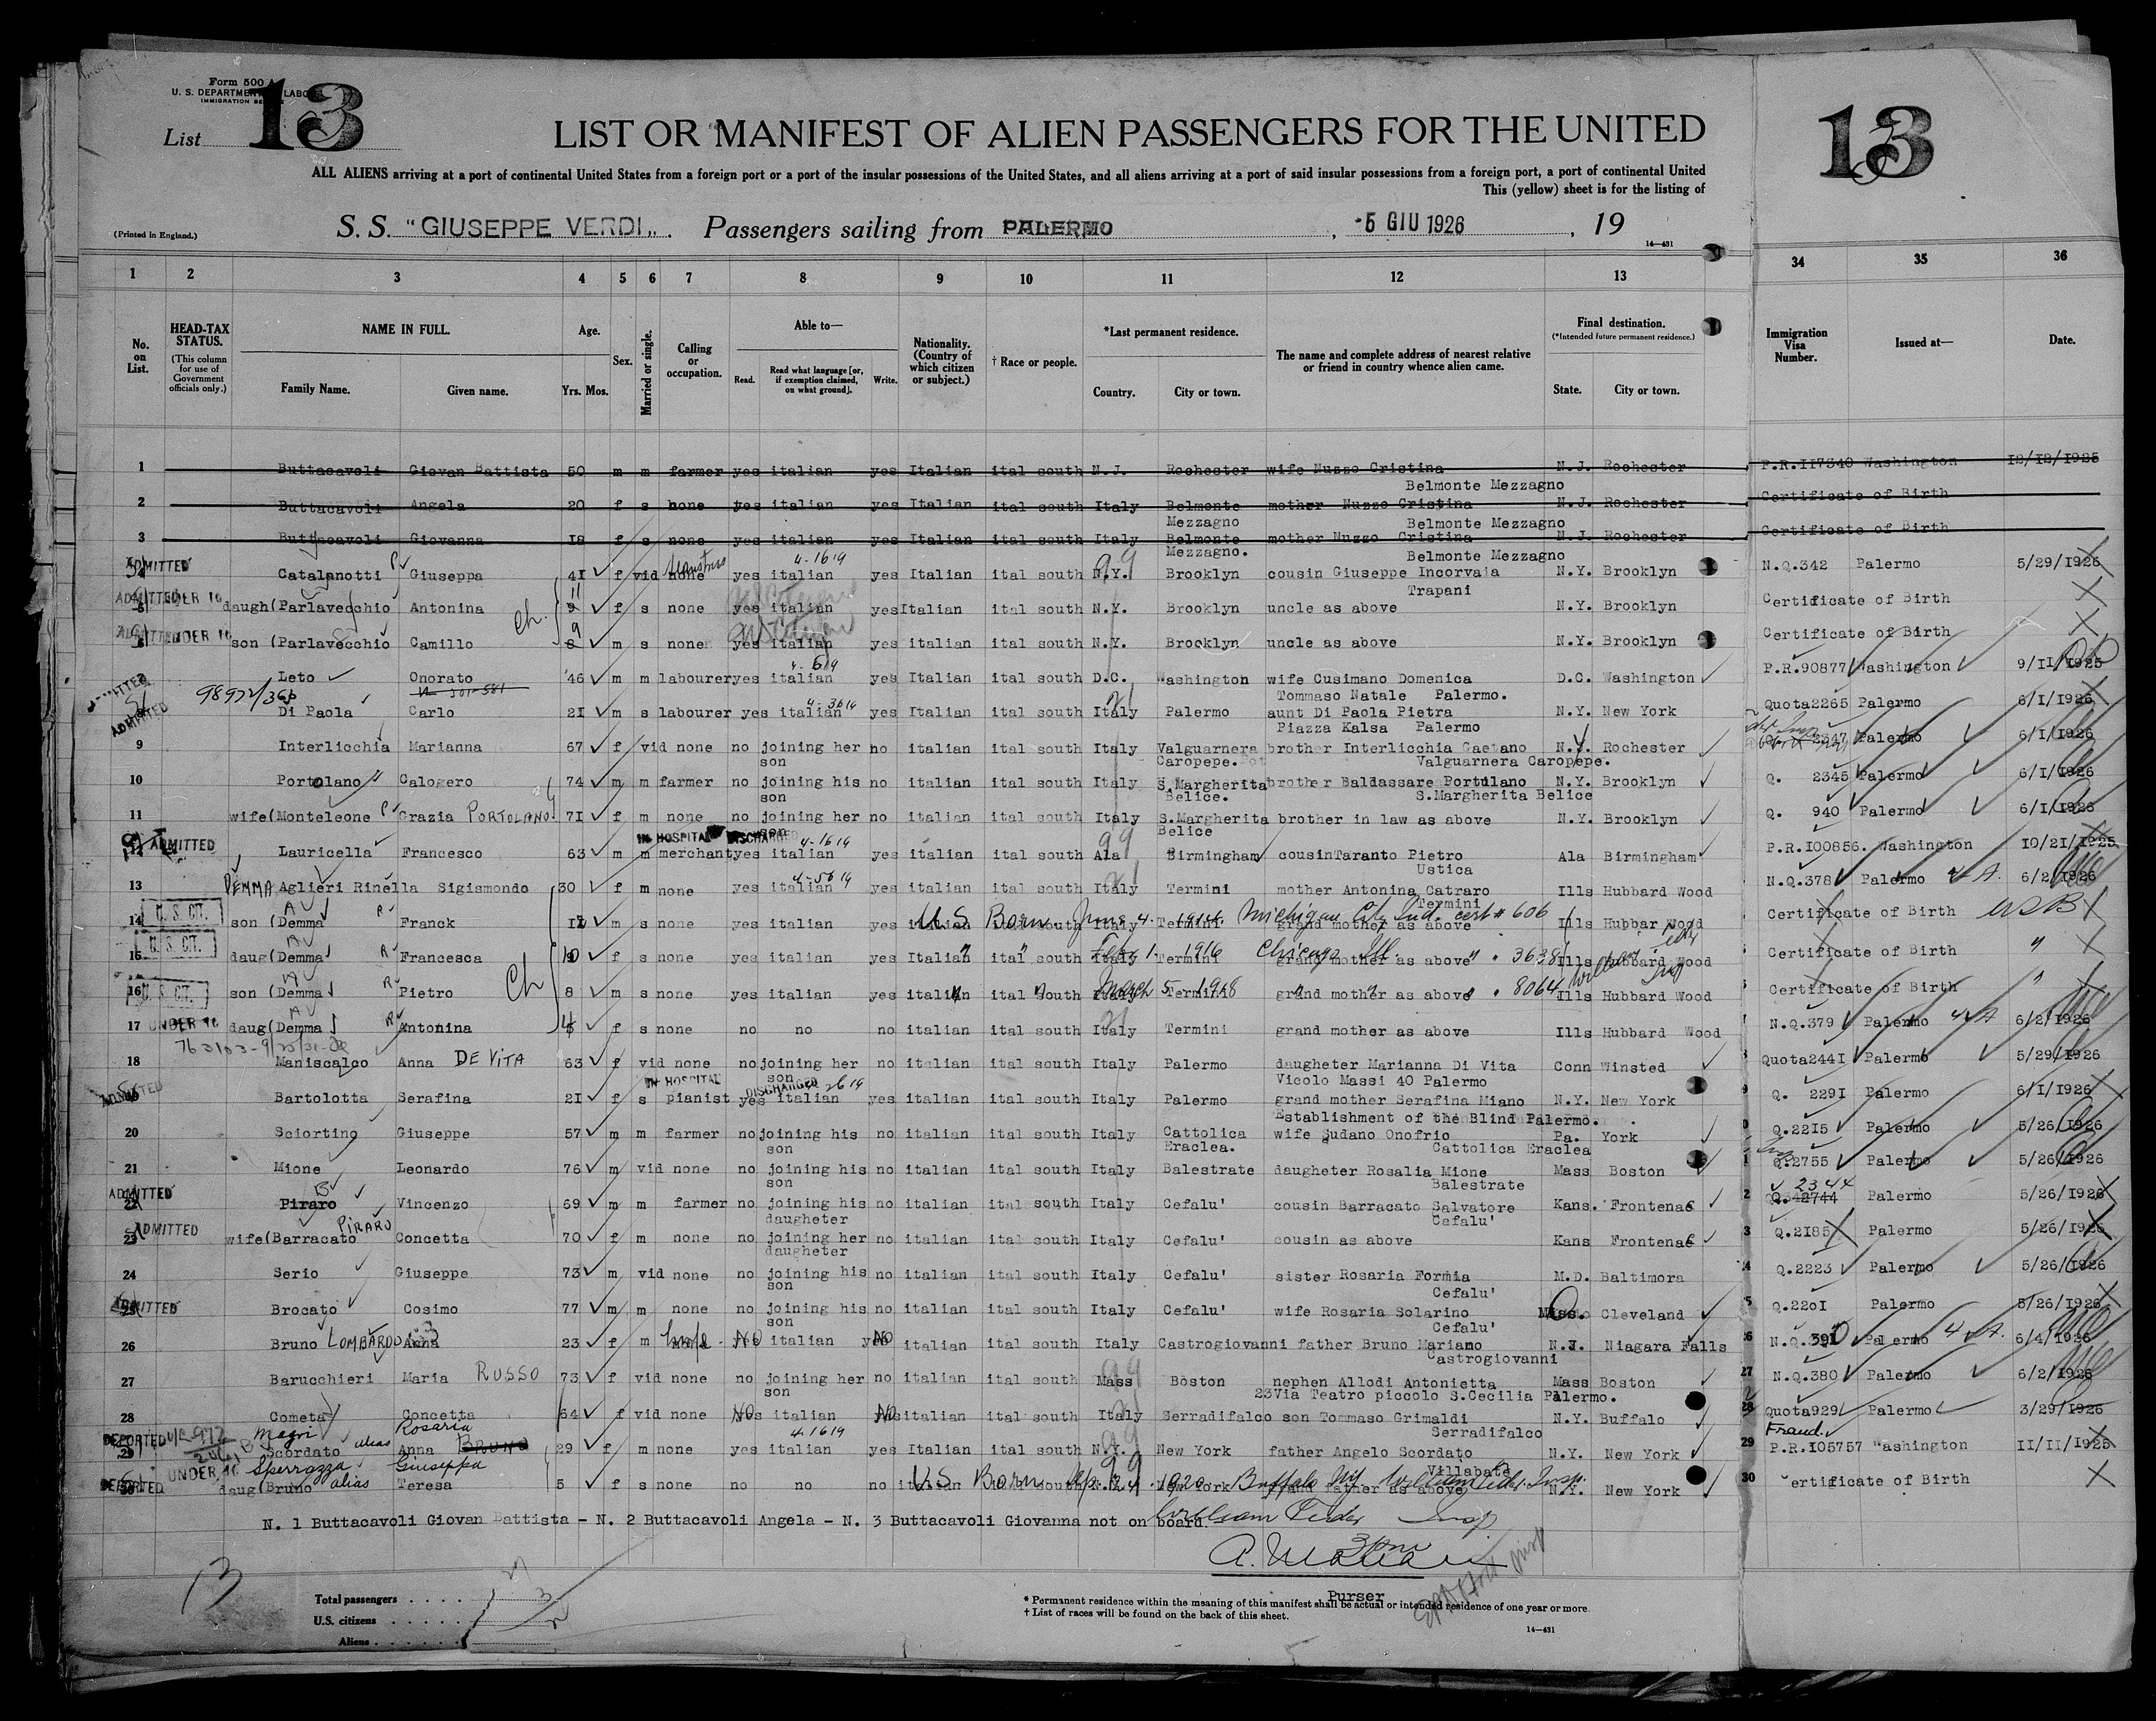 Form 500
U. S. DEPARTMENT LABOR
IMMIGRATION SERVICE
List 13
13
LIST OR MANIFEST OF ALIEN PASSENGERS FOR THE UNITED
ALL ALIENS arriving at a port of continental United States from a foreign port or a port of the insular possessions of the United States, and all aliens arriving at a port of said insular possessions from a foreign port, a port of continental United
This (yellow) sheet is for the listing of
(Printed in England.)
S. S. "GIUSEPPE VERDI„. Passengers sailing from PALERMO, -5 GIU 1926, 19
14—431
1 2 3 4 5 6 7 8 9 10 11 12 13 34 35 36
No. on List.
HEAD-TAX STATUS.
(This column for use of Government officials only.)
NAME IN FULL.
Family Name. Given name.
Age.
Yrs. Mos.
Sex.
Married or single.
Calling or occupation.
Able to—
Read. Read what language [or, if exemption claimed, on what ground]. Write.
Nationality. (Country of which citizen or subject.)
† Race or people.
*Last permanent residence.
Country. City or town.
The name and complete address of nearest relative or friend in country whence alien came.
Final destination.
(*Intended future permanent residence.)
State. City or town.
Immigration Visa Number.
Issued at—
Date.
1 Buttacavoli Giovan Battista 50 m m farmer yes italian yes Italian ital south N.J. Rochester wife Nuzzo Cristina N.J. Rochester P.R.117340 Washington 12/12/1925
Belmonte Mezzagno
2 Buttacavoli Angela 20 f s none yes italian yes Italian ital south Italy Belmonte mother Nuzzo Cristina N.J. Rochester Certificate of Birth
Mezzagno Belmonte Mezzagno
3 Buttacavoli Giovanna 18 f s none yes italian yes Italian ital south Italy Belmonte mother Nuzzo Cristina N.J. Rochester Certificate of Birth
Mezzagno. Belmonte Mezzagno
4-1619
ADMITTED Catalanotti Giuseppa 41 f vid none yes italian yes Italian ital south N.Y. Brooklyn cousin Giuseppe Incorvaia N.Y. Brooklyn N.Q.342 Palermo 5/29/1926
Trapani
ADMITTED UNDER 16 daugh(Parlavecchio Antonina ch. 11 9 f s none yes italian yes Italian ital south N.Y. Brooklyn uncle as above N.Y. Brooklyn Certificate of Birth
ADMITTED UNDER 16 son (Parlavecchio Camillo 9 8 m s none yes italian yes Italian ital south N.Y. Brooklyn uncle as above N.Y. Brooklyn Certificate of Birth
ADMITTED Leto Onorato 46 m m labourer yes italian yes Italian ital south D.C. Washington wife Cusimano Domenica D.C. Washington P.R.90877 Washington 9/11/1925
Tommaso Natale Palermo.
ADMITTED Di Paola Carlo 21 m s labourer yes italian yes Italian ital south Italy Palermo aunt Di Paola Pietra N.Y. New York Quota2265 Palermo 6/1/1926
Piazza Kalsa Palermo
9 Interlicchia Marianna 67 f vid none no joining her no italian ital south Italy Valguarnera brother Interlicchia Gaetano N.Y. Rochester 2347 Palermo 6/1/1926
son Caropepe. Valguarnera Caropepe.
10 Portolano Calogero 74 m m farmer no joining his no italian ital south Italy S.Margherita brother Baldassare Portulano N.Y. Brooklyn Q. 2345 Palermo 6/1/1926
son Belice. S.Margherita Belice
11 wife(Monteleone Grazia PORTOLANO 71 f m none no joining her no italian ital south Italy S.Margherita brother in law as above N.Y. Brooklyn Q. 940 Palermo 6/1/1926
son Belice
IN HOSPITAL DISCHARGED 4-1619
12 ADMITTED Lauricella Francesco 63 m m merchant yes italian yes italian ital south Ala Birmingham cousin Taranto Pietro Ala Birmingham P.R.100856. Washington 10/21/1925
Ustica
13 DEMMA Aglieri Rinella Sigismondo 30 f m none yes italian yes italian ital south Italy Termini mother Antonina Catraro Ills Hubbard Wood N.Q.378 Palermo 6/2/1926
Termini
14 U. S. CIT. son (Demma Franck 12 m s none yes italian yes italian ital south Italy Termini grand mother as above Ills Hubbar Wood Certificate of Birth
U.S. Born June 4. 1914 Michigan City Ind. cert # 606
15 U. S. CIT. daug(Demma Francesca 10 f s none yes italian yes italian ital south Italy Termini grand mother as above Ills Hubbard Wood Certificate of Birth
Feb. 1 1916 Chicago Ill. " " 3638
16 U. S. CIT. son (Demma Pietro Ch 8 m s none yes italian yes italian ital south Italy Termini grand mother as above Ills Hubbard Wood Certificate of Birth
March 5 1918 " " 8064
17 UNDER 16 daug(Demma Antonina 4 f s none no no no italian ital south Italy Termini grand mother as above Ills Hubbard Wood N.Q.379 Palermo 6/2/1926
18 Maniscalco Anna DE VITA 63 f vid none no joining her no italian ital south Italy Palermo daugheter Marianna Di Vita Conn Winsted Quota2441 Palermo 5/29/1926
son Vicolo Massi 40 Palermo
IN HOSPITAL DISCHARGED
19 ADMITTED Bartolotta Serafina 21 f s pianist yes italian yes italian ital south Italy Palermo grand mother Serafina Miano N.Y. New York Q. 2291 Palermo 6/1/1926
Establishment of the Blind Palermo.
20 Sciortino Giuseppe 57 m m farmer no joining his no italian ital south Italy Cattolica wife Sudano Onofrio Pa. York Q.2215 Palermo 5/26/1926
son Eraclea. Cattolica Eraclea
21 Mione Leonardo 76 m vid none no joining his no italian ital south Italy Balestrate daugheter Rosalia Mione Mass Boston Q.2755 Palermo 5/26/1926
son Balestrate
ADMITTED 2344
22 Piraro Vincenzo 69 m m farmer no joining his no italian ital south Italy Cefalu' cousin Barracato Salvatore Kans. Frontenac 2744 Palermo 5/26/1926
daugheter Cefalu'
23 ADMITTED wife(Barracato PIRARO Concetta 70 f m none no joining her no italian ital south Italy Cefalu' cousin as above Kans Frontenac Q.2185 Palermo 5/26/1926
daugheter
24 Serio Giuseppe 73 m vid none no joining his no italian ital south Italy Cefalu' sister Rosaria Formia M.D. Baltimora Q.2223 Palermo 5/26/1926
son Cefalu'
25 ADMITTED Brocato Cosimo 77 m m none no joining his no italian ital south Italy Cefalu' wife Rosaria Solarino O Cleveland Q.2201 Palermo 5/26/1926
son Cefalu'
26 Bruno LOMBARDO Anna 23 f m No italian No italian ital south Italy Castrogiovanni father Bruno Mariano N.Y. Niagara Falls N.Q.390 Palermo 6/4/1926
Castrogiovanni
27 Barucchieri Maria RUSSO 73 f vid none no joining her no italian ital south Mass Boston nephen Allodi Antonietta Mass Boston N.Q.380 Palermo 6/2/1926
son 23Via Teatro piccolo S.Cecilia Palermo.
28 Cometa Concetta 64 f vid none No italian No italian ital south Italy Serradifalco son Tommaso Grimaldi N.Y. Buffalo Quota929 Palermo 3/29/1926
Serradifalco
Magri Rosaria Fraud.
29 DEPORTED Scordato alias Anna BRUNO 29 f m none yes italian yes Italian ital south N.Y. New York father Angelo Scordato N.Y. New York P.R.105757 Washington 11/11/1925
Villabate
UNDER 16 Sperrazza Giuseppa
30 DEPORTED daug(Bruno alias Teresa 5 f s none no no no italian ital south N.Y. New York father as above N.Y. New York Certificate of Birth
U.S. Born 1920 Buffalo NY William Feder Insp.
N. 1 Buttacavoli Giovan Battista - N. 2 Buttacavoli Angela - N. 3 Buttacavoli Giovanna not on board.
William Feder Insp
Purser
13
Total passengers . . . . 27
U.S. citizens . . . . . 3
Aliens . . . . . .
* Permanent residence within the meaning of this manifest shall be actual or intended residence of one year or more.
† List of races will be found on the back of this sheet.
14—431